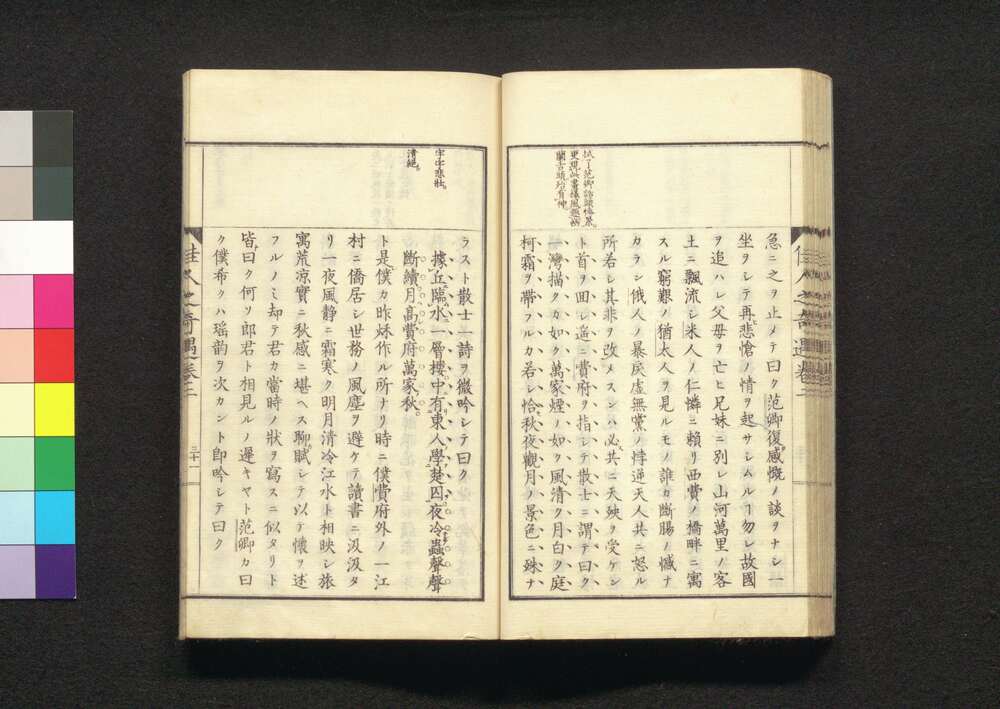 佳人之奇遇卷二
急ニ之ヲ止メテ曰ク范卿復感慨ノ談ヲナシ一
坐ヲシテ再悲愴ノ情ヲ起サシムルヿ勿レ故國
ヲ追ハレ父母ヲ亡ヒ兄妹ニ別レ山河萬里ノ客
土ニ飄流シ米人ノ仁憐ニ頼リ西費ノ橋畔ニ寓
スル窮艱ノ猶太人ヲ見ルモノ誰カ斷腸ノ憾ナ
カラン俄人ノ暴戻虚無黨ノ悖逆天人共ニ怒ル
所若シ其非ヲ改メスンハ必共ニ天殃ヲ受ケン
ト首ヲ回シ遥ニ費府ヲ指シテ散士ニ謂テ曰ク
一灣描クカ如ク萬家煙ノ如ク風清ク月白ク庭
柯霜ヲ帶フルカ若シ恰秋夜觀月ノ景色ニ殊ナ
ラスト散士一詩ヲ微吟シテ曰ク
據丘臨水一層樓中有東人學楚囚夜冷蟲聲聲
斷續月高費府萬家秋
ト是僕カ昨秌作ル所ナリ時ニ僕費府外ノ一江
村ニ僑居シ世務ノ風塵ヲ避ケテ讀書ニ汲汲タ
リ一夜風静ニ霜寒ク明月清冷江水ト相映シ旅
寓荒凉實ニ秋感ニ堪ヘス聊賦シテ以テ懷ヲ述
フルノミ却テ君カ當時ノ狀ヲ寫スニ似タリト
皆曰ク何ソ郎君ト相見ルノ遲キヤト范卿カ曰
ク僕希クハ瑶韵ヲ次カント即吟シテ曰ク
字字悲壯
清絕
佳人之奇遇卷二
三十一